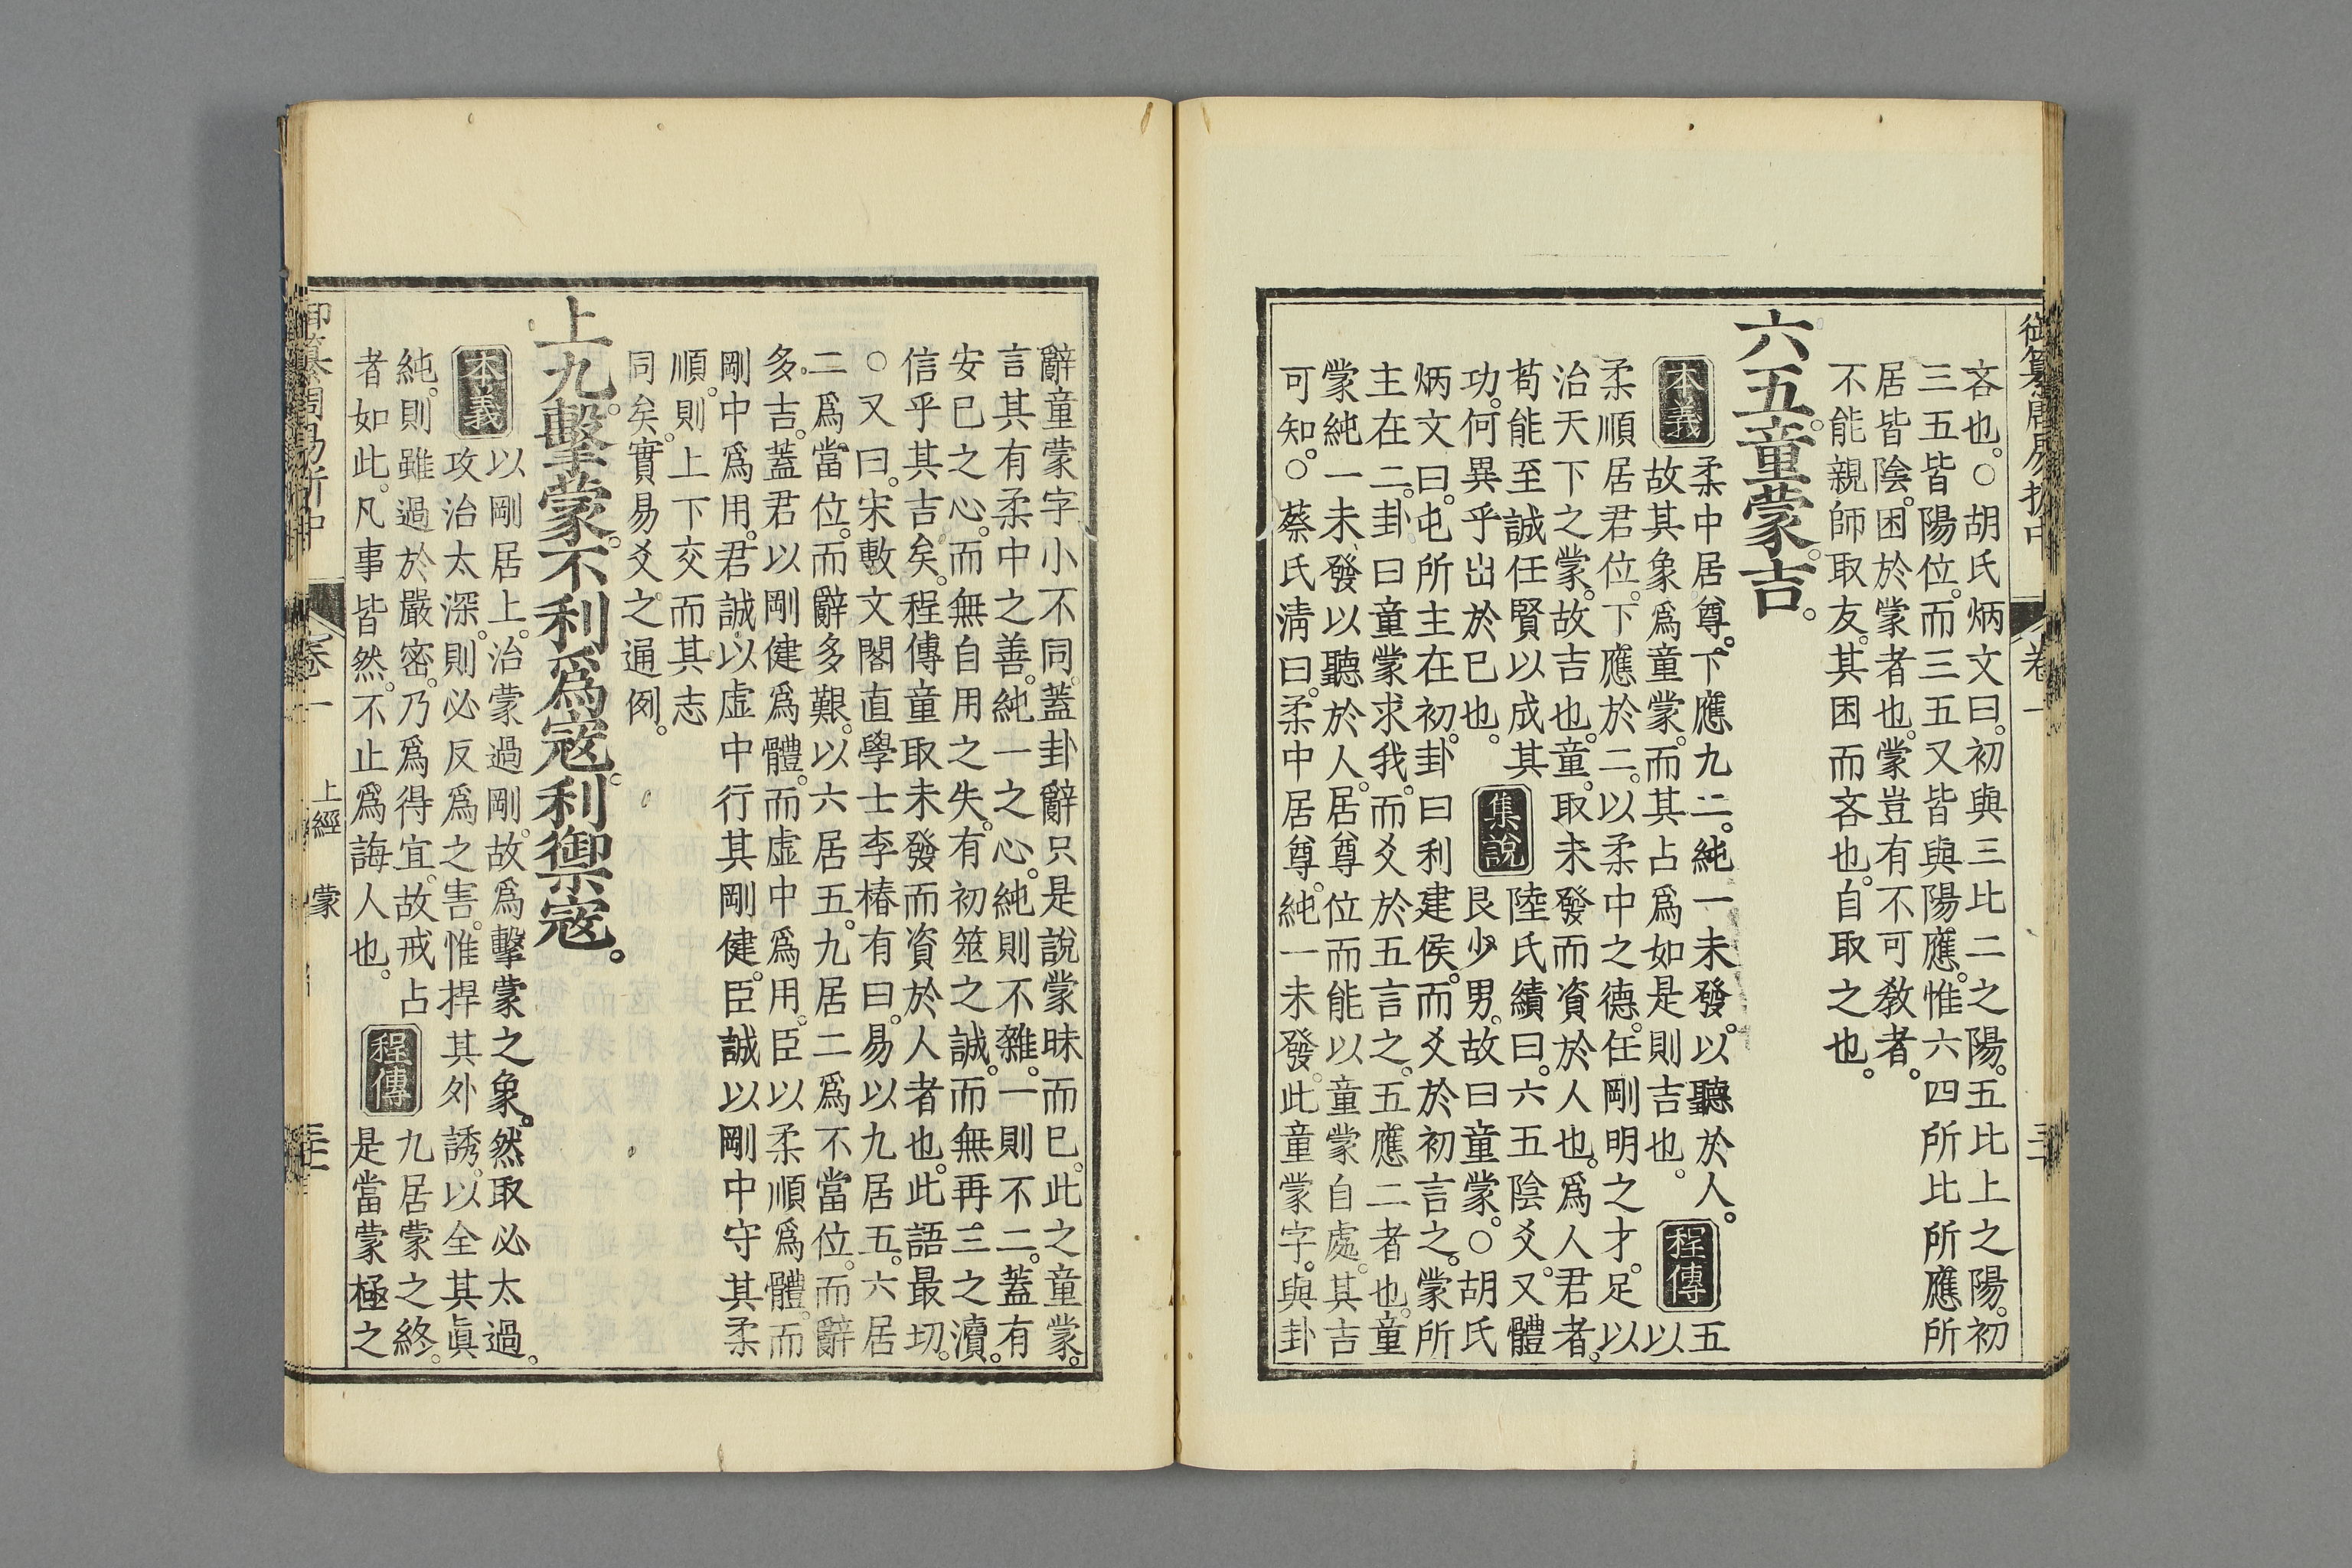 御纂周易折中
卷一
吝也。○胡氏炳文曰。初與三比二之陽。五比上之陽。初
三五皆陽位。而三五又皆與陽應。惟六四所比所應所
居皆陰。困於蒙者也。蒙豈有不可敎者。
不能親師取友。其困而吝也。自取之也。
六五。童蒙。吉。
本義
柔中居尊。下應九二。純一未發。以聽於人。
故其象爲童蒙。而其占爲如是則吉也。
程傳
五以
柔順居君位。下應於二。以柔中之德。任剛明之才。足以
治天下之蒙。故吉也。童。取未發而資於人也。爲人君者。
苟能至誠任賢以成其
功。何異乎出於已也。
集說
陸氏績曰。六五陰爻。又體
艮少男。故曰童蒙。○胡氏
炳文曰。屯所主在初。卦曰利建侯。而爻於初言之。蒙所
主在二。卦曰童蒙求我。而爻於五言之。五應二者也。童
蒙純一未發以聽於人。居尊位而能以童蒙自處。其吉
可知。○蔡氏淸曰。柔中居尊。純一未發。此童蒙字。與卦
辭童蒙字小不同。蓋卦辭只是說蒙昧而已。此之童蒙。
言其有柔中之善。純一之心。純則不雜。一則不二。蓋有
安已之心。而無自用之失。有初筮之誠。而無再三之瀆。
信乎其吉矣。程傳童取未發而資於人者也。此語最切。
○又曰。宋敷文閣直學士李椿有曰。易以九居五。六居
二爲當位。而辭多艱。以六居五。九居二爲不當位。而辭
多吉。蓋君以剛健爲體。而虛中爲用。臣以柔順爲體。而
剛中爲用。君誠以虛中行其剛健。臣誠以剛中守其柔
順。則上下交而其志
同矣。實易爻之通例。
上九。擊蒙。不利爲寇。利禦寇。
本義
以剛居上。治蒙過剛。故爲擊蒙之象。然取必太過。
攻治太深。則必反爲之害。惟捍其外誘。以全其眞
純。則雖過於嚴密。乃爲得宜。故戒占
者如此。凡事皆然。不止爲誨人也。
程傳
九居蒙之終。
是當蒙極之
御纂周易折中
卷一
上經 蒙